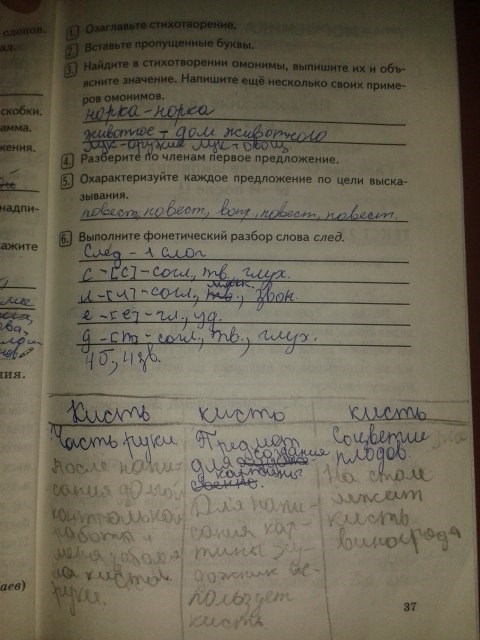 1. Озаглавьте стихотворение.
2. Вставьте пропущенные буквы.
3. Найдите в стихотворении омонимы, выпишите их и объ-
ясните значение. Напишите ещё несколько своих приме-
ров омонимов.
норка – норка
животное – дом животного
лук – оружие лук – овощ
4. Разберите по членам первое предложение.
5. Охарактеризуйте каждое предложение по цели выска-
зывания.
повест, повест, вопр, повест, повест.
6. Выполните фонетический разбор слова след.
След – 1 слог
с – [с] – согл, тв, глух.
л – [л'] – согл, мягк., звон.
е – [е] – гл, уд.
д – [т] – согл, тв., глух.
4б, 4зв.
Кисть кисть кисть
Часть руки Предмет Соцветие
для создания плодов
картины
После напи-
сания долгой
контрольной
работы у
меня
кисть
руки.
Для напи-
сания кар-
тины ху-
дожник ис-
пользует
кисть
На столе
лежит
кисть
винограда
скобки.
амма.
жения.
надпи-
кажите
ния.
аев)
37